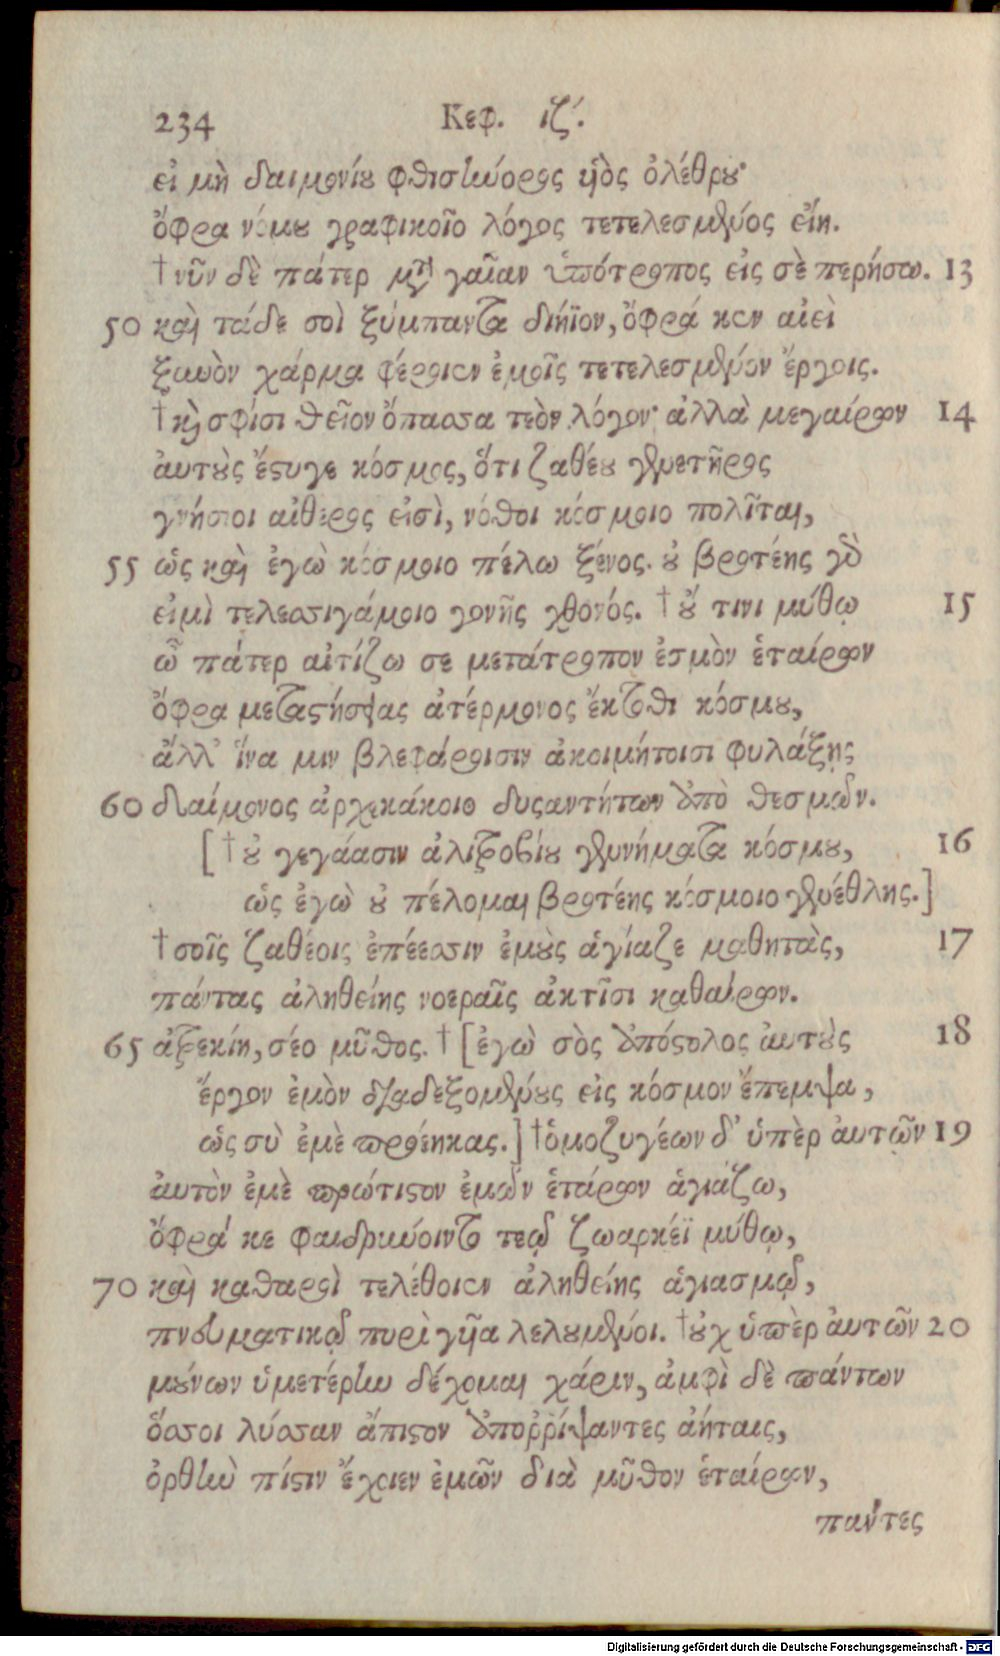 234 Κεφ. ιζ΄.
εἰ μὴ δαιμονίου φθισήνορος ἡὸς ὀλέθρου·
ὄφρα νόμου γραφικοῖο λόγος τετελεσμένος εἴη.
† νῦν δὲ πάτερ μετὰ γαῖαν ὑπότροπος εἰς σὲ περήσω. 13
50 καὶ τάδε σοὶ ξύμπαντα διήϊον, ὄφρά κεν αἰεὶ
ξωὸν χάρμα φέροιεν ἐμοῖς τετελεσμένον ἔργοις.
† καὶ σφίσι θεῖον ὄπασσα τεὸν λόγον· ἀλλὰ μεγαίρων 14
αὐτοὺς ἔστυγε κόσμος, ὅτι ζαθέου γενετῆρος
γνήσιοι αἰθέρος εἰσὶ, νόθοι κόσμοιο πολῖται,
55 ὡς καὶ ἐγὼ κόσμοιο πέλω ξένος. οὐ βροτέης γὰρ
εἰμὶ τελεσσιγάμοιο γονῆς χθονός. † οὔ τινι μύθῳ 15
ὦ πάτερ αἰτίζω σε μετάτροπον ἑσμὸν ἑταίρων
ὄφρα μεταστήσῃας ἀτέρμονος ἔκτοθι κόσμου,
ἀλλ᾽ ἵνα μιν βλεφάροισιν ἀκοιμήτοισι φυλάξῃς
60 δαίμονος ἀρχεκάκοιο δυσαντήτων ἀπὸ θεσμῶν.
[ † οὐ γεγάασιν ἁλιτροβίου γενήματα κόσμου, 16
ὡς ἐγὼ οὐ πέλομαι βροτέης κόσμοιο γενέθλης.]
† σοῖς ζαθέοις ἐπέεσσιν ἐμοὺς ἁγίαζε μαθητὰς, 17
πάντας ἀληθείης νοεραῖς ἀκτῖσι καθαίρων.
65 ἀτρεκίη, σέο μῦθος. † [ἐγὼ σὸς ἀπόστολος αὐτοὺς 18
ἔργον ἐμὸν διαδεξομένους εἰς κόσμον ἔπεμψα,
ὡς σὺ ἐμὲ προέηκας.] † ὁμοζυγέων δ᾽ ὑπὲρ αὐτῶν 19
αὐτὸν ἐμὲ πρώτιστον ἐμῶν ἑτάρων ἁγιάζω,
ὄφρά κε φαιδρύνοιντο τεῷ ζωαρκέϊ μύθῳ,
70 καὶ καθαροὶ τελέθοιεν ἀληθείης ἁγιασμῷ,
πνευματικῷ πυρὶ γυῖα λελουμένοι. † οὐχ ὑπὲρ αὐτῶν 20
μούνων ὑμετέρην δέχομαι χάριν, ἀμφὶ δὲ πάντων
ὅσσοι λύσσαν ἄπιστον ἀποῤῥίψαντες ἀήταις,
ὀρθὴν πίστιν ἔχοιεν ἐμῶν διὰ μῦθον ἑταίρων,
πάντες
Digitalisierung gefördert durch die Deutsche Forschungsgemeinschaft - DFG